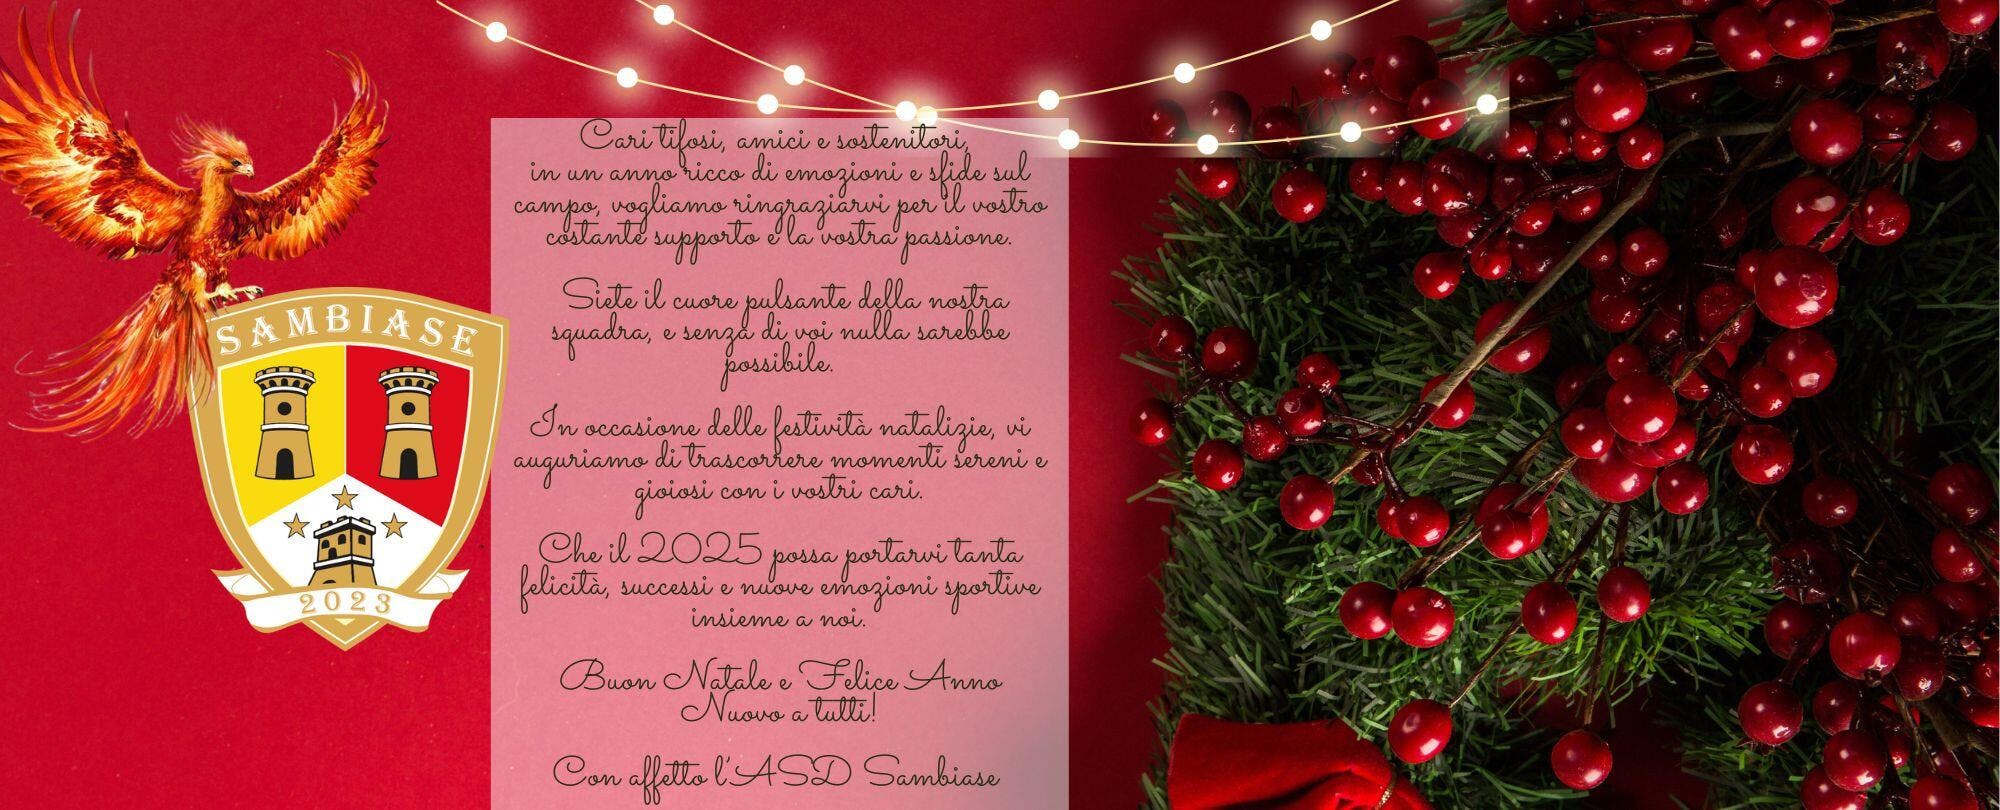 SAMBIASE
2023
Cari tifosi, amici e sostenitori,
in un anno ricco di emozioni e sfide sul
campo, vogliamo ringraziarvi per il vostro
costante supporto e la vostra passione.
Siete il cuore pulsante della nostra
squadra, e senza di voi nulla sarebbe
possibile.
In occasione delle festività natalizie, vi
auguriamo di trascorrere momenti sereni e
gioiosi con i vostri cari.
Che il 2025 possa portarvi tanta
felicità, successi e nuove emozioni sportive
insieme a noi.
Buon Natale e Felice Anno
Nuovo a tutti!
Con affetto l'ASD Sambiase